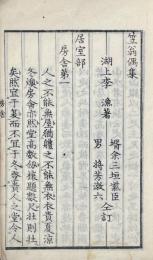 笠翁偶集
湖上李漁著
壻余三垣裁臣
男蔣芳澂六
仝訂
居室部
房舍第一
人之不能無屋猶體之不能無衣衣貴夏涼
冬燠房舍亦然堂高數仞榱題數尺壯則壯
矣然宜于夏而不宜于冬登貴人之堂令人